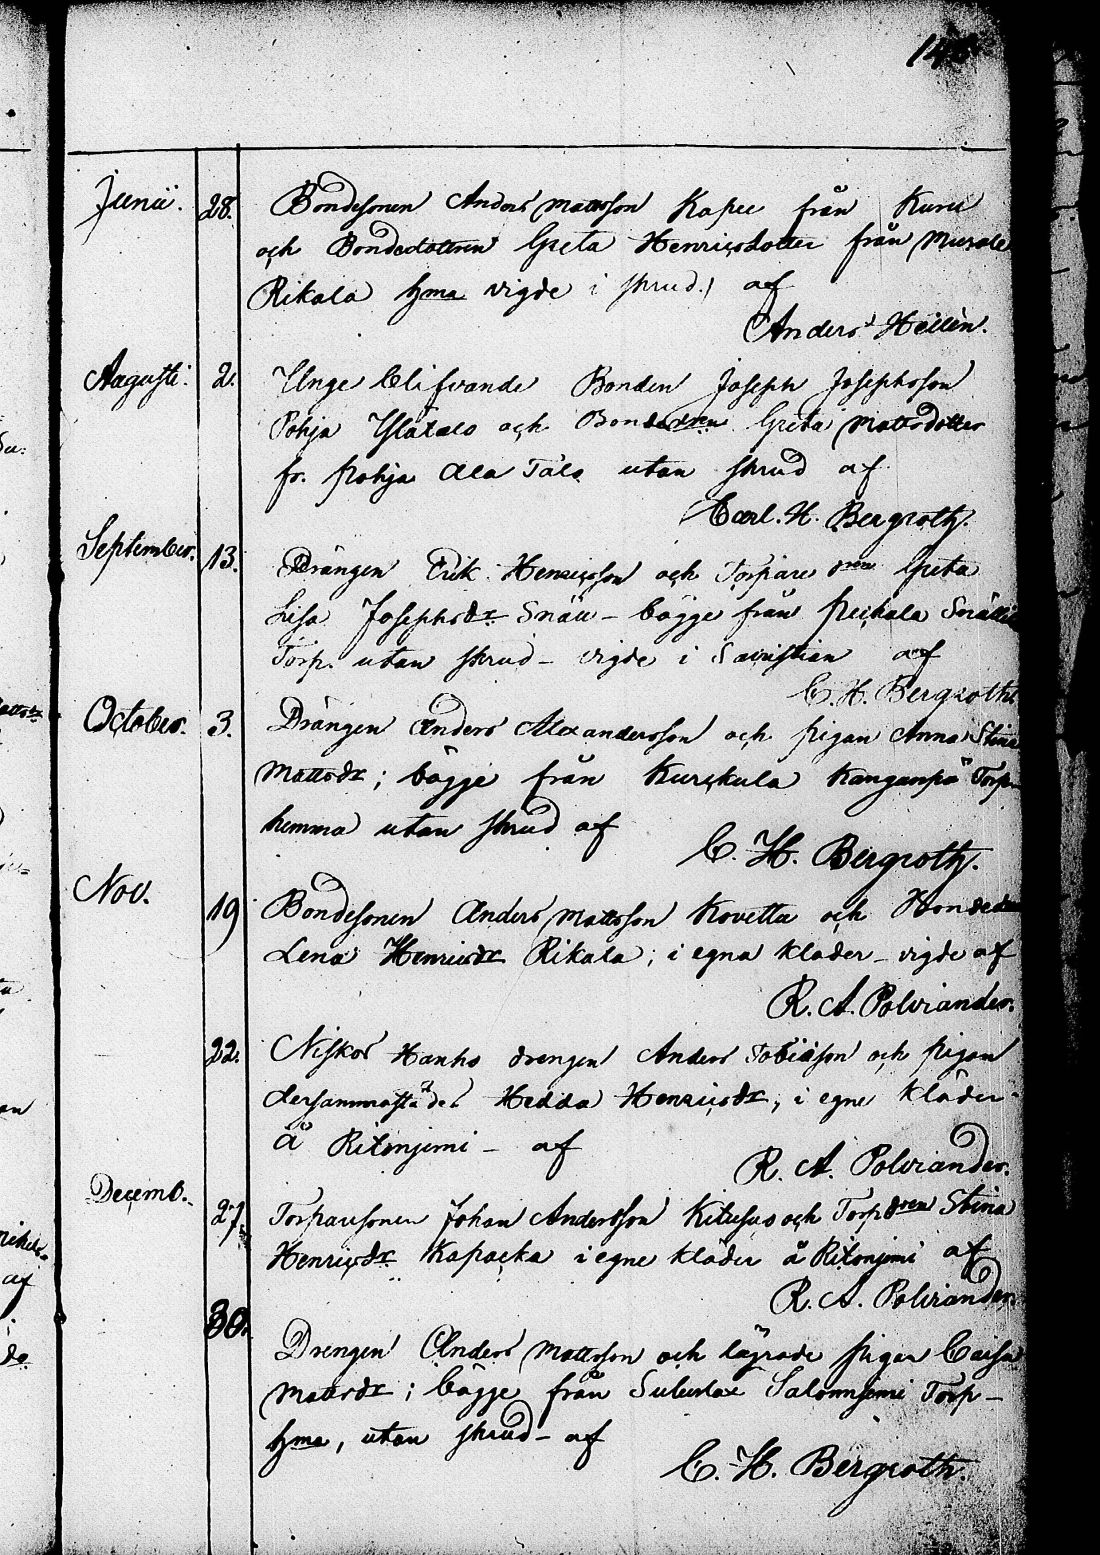 Junii. 28. Bondesonen Anders Mattsson Kapee från Kuru
och Bondedottren Greta Henricsdotter från Murole
Rikala hma vigde i skrud.) af
Anders Hellén.
Augusti. 2. Unge blifvande Bonden Joseph Josephsson
Pohja Ylätalo och Bondedren Greta Mattsdotter
fr. Pohja Ala Talo utan skrud af
Carl. H. Bergroth.
September. 13. Drängen Erik Henricsson och Torpare dren Greta
Lisa Josephsdr Snäll - bägge från
Torp. utan skrud - vigde i af
C. H. Bergroth.
October. 3. Drängen Anders Alexandersson och pigan Anna Stina
Mattsdr; bägge från Kurckula Kanganpä Torp
hemma utan skrud af
C. H. Bergroth.
Nov. 19 Bondesonen Anders Mattsson Kovetta och
Lena Henricsdr Rikala; i egna kläder - vigde af
R. A. Polviander.
22. Niskos Hanho drengen Anders Tobiasson och pigan
dersammastädes Hedda Henricsdr, i egne kläder
å Ritonjemi - af
R. A. Polviander.
Decemb. 27. Torparesonen Johan Andersson Kitusuo och Torpdren Stina
Henricsdr Kapacka i egne kläder å Ritonjemi af
R. A. Polviander.
30. Drengen Anders Mattsson och lägrade pigan Caisa
Mattsdr; bägge från Salonnjemi Torp-
hma, utan skrud - af
C. H. Bergroth.